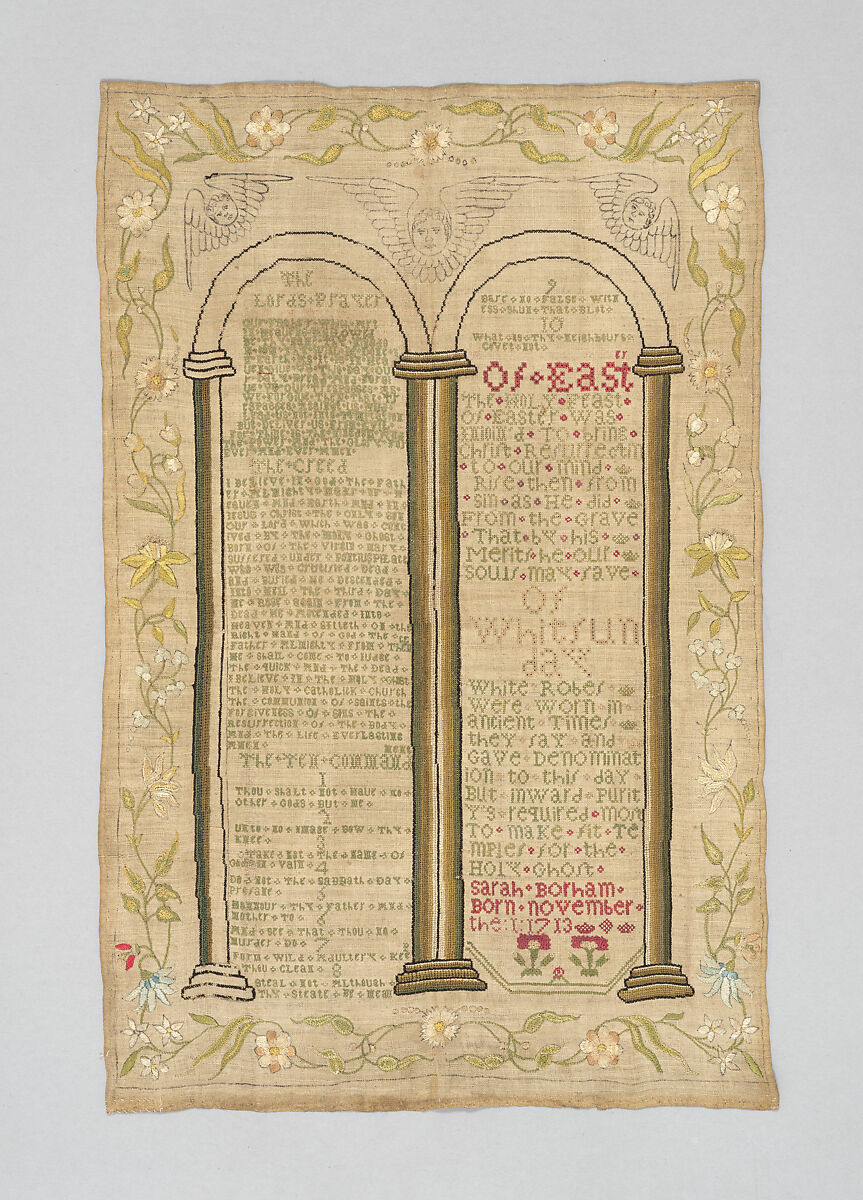 The
Lords Prayer
But Deliver us From Evil
Ever And Ever Amen
The Creed
I Believe In God The Fath
er Almighty Maker Of H
eaven And Earth And In
Jesus Christ The Only Son
Our Lord Which Was Conc
ived By The Holy Ghost
Born Of The Virgin Mary
Suffered Under Pontius Pilate
Who Was Crucified Dead
And Buried He Descended
Into Hell The Third Day
He Rose Again From The
Dead He Ascended Into
Heaven And Sitteth On the
Right Hand Of God The
Father Almighty From Then
ce
He Shall Come To Judge
The Quick And The Dead
I Believe In The Holy Ghost
The Holy Catholick Church
The Communion Of Saints the
Forgiveness Of Sins The
Resurrection Of The Body
And The Life Everlasting
Amen
The Ten Command
ment
1
Thou Shalt Not Have No
Other Gods But Me
2
Unto No Image Bow Thy
Knee
3
Take Not The Name Of
God In Vain
4
Do Not The Sabbath Day
Profane
5
Honnour Thy Father And
Mother To
6
And See That Thou No
Murder Do
7
Form Wild Adultery Kee
p
Thou Clean
8
Steal Not Although
Thy State Be Mean
9
Bare No False Witn
ess Shun That Blot
10
What Is Thy Neighbours
Covet Not
Of East
er
The Holy Feast
Of Easter Was
Injoin'd To bring
Christ Resurrectin
to our mind
Rise then from
sin as He did
From the Grave
That by his
Merits he our
souls may save
Of
Whitsun
day
White Robes
Were worn in
ancient Times
they say and
Gave Denominat
ion to this day
But inward Purit
y's required most
To make fit Te
mples for the
Holy Ghost
Sarah Borham
Born november
the 1 1713